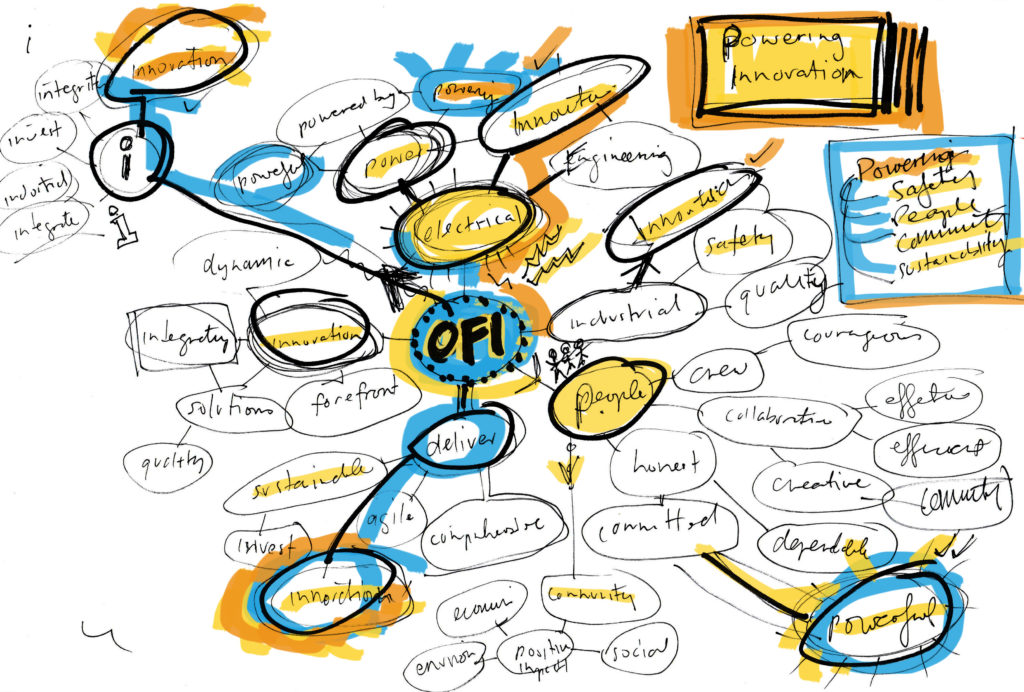 i
innovation
integrity
invest
integrate
i
i
powered by
powerful
power
electrical
Engineering
Powering
innovation
Powering
Safety
People
Community
sustainability
safety
quality
industrial
dynamic
integrity
innovation
solutions
forefront
quality
OFI
people
crew
courageous
collaborative
effective
efficient
creative
honest
committed
dependable
powerful
deliver
sustainable
agile
invest
innovation
community
positive
impact
social
environ